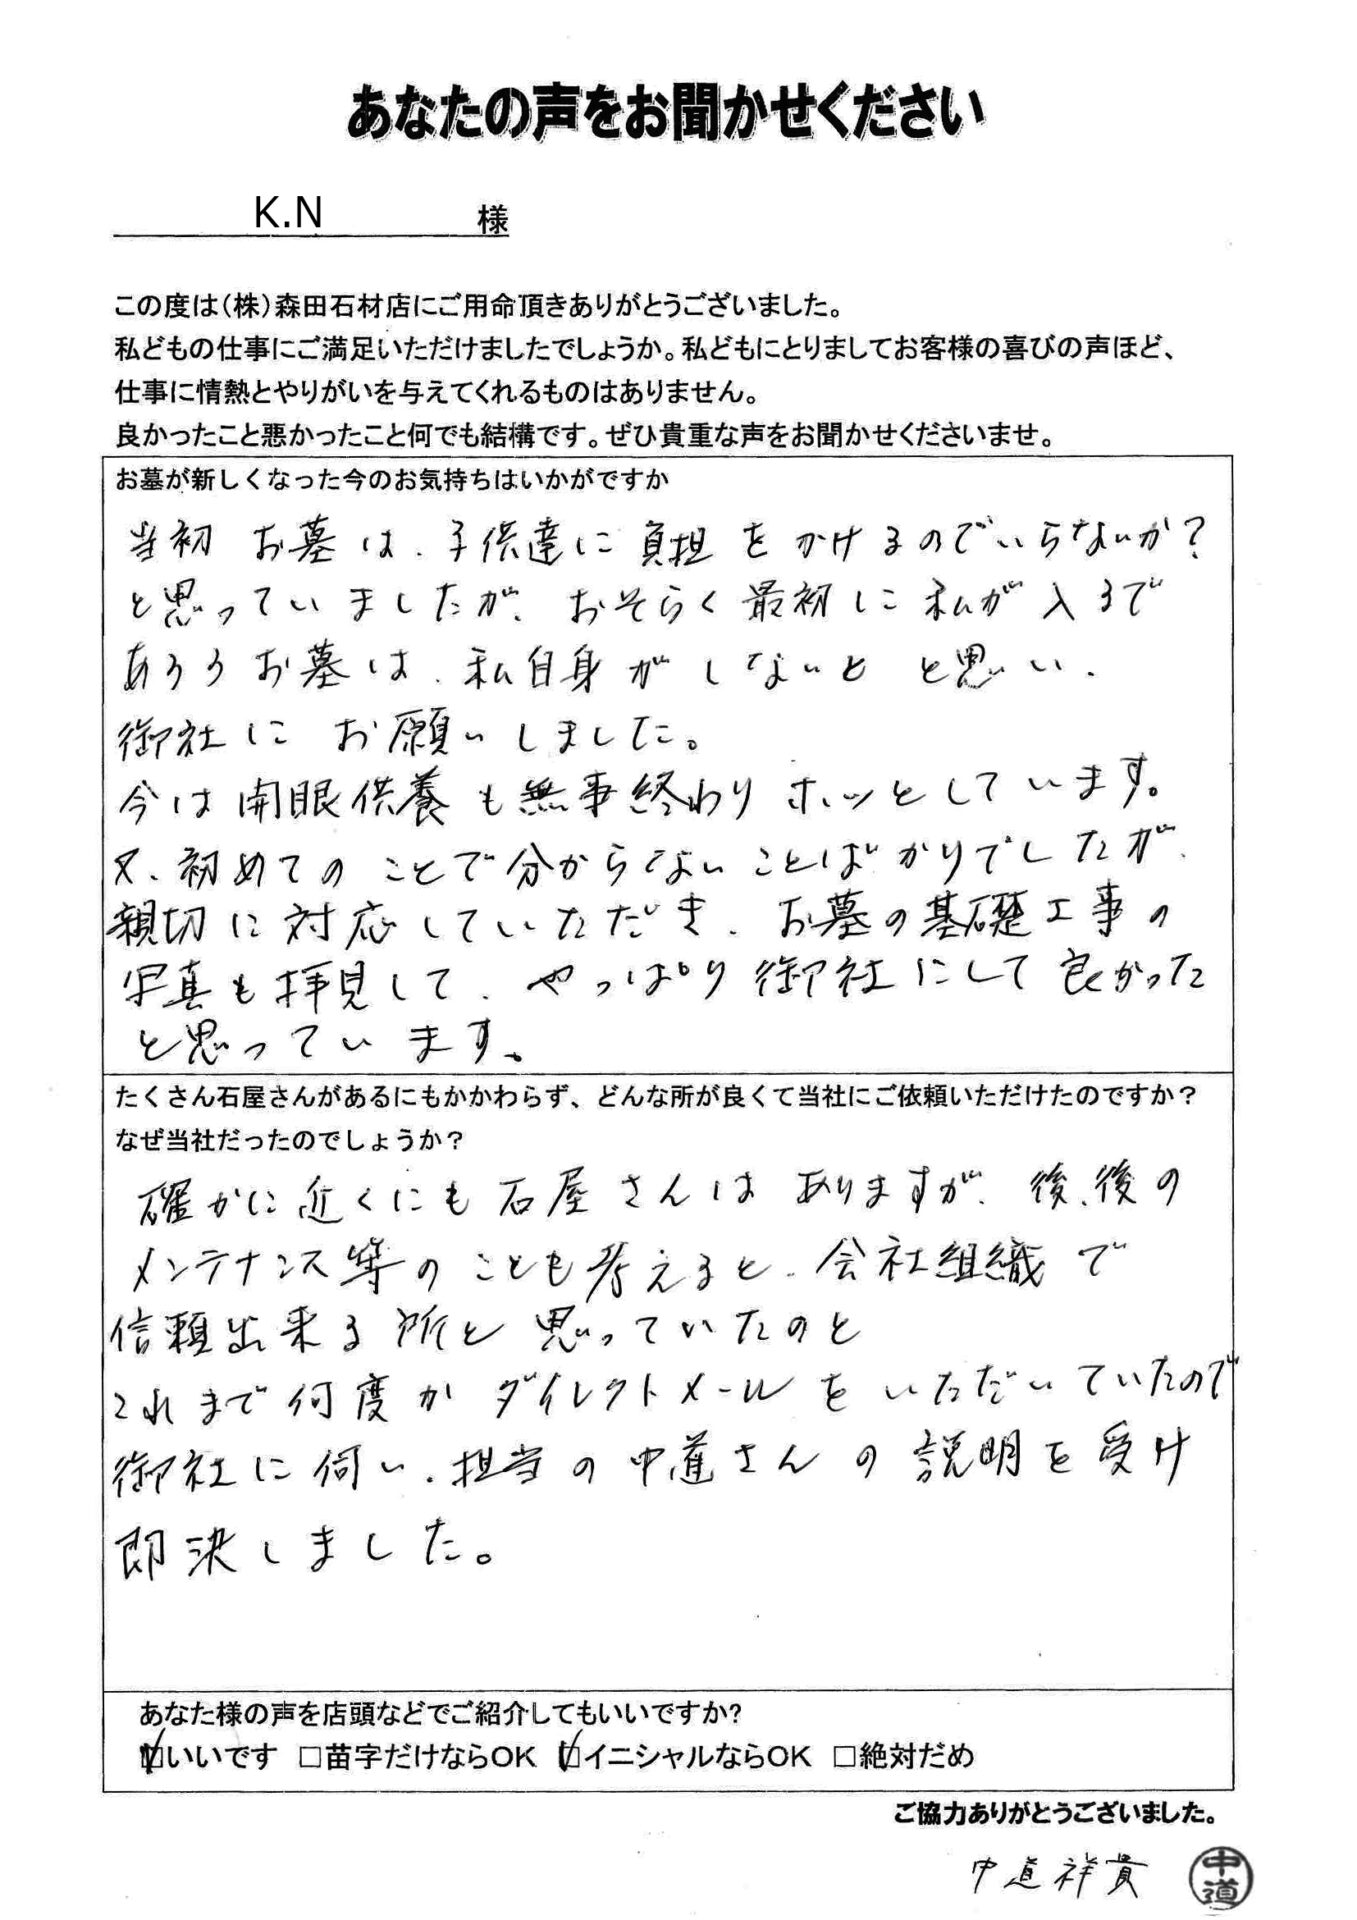 あなたの声をお聞かせください
K.N 様
この度は(株)森田石材店にご用命頂きありがとうございました。
私どもの仕事にご満足いただけましたでしょうか。私どもにとりましてお客様の喜びの声ほど、
仕事に情熱とやりがいを与えてくれるものはありません。
良かったこと悪かったこと何でも結構です。ぜひ貴重な声をお聞かせくださいませ。
お墓が新しくなった今のお気持ちはいかがですか
当初 お墓は、子供達に負担をかけるのでいらないか?
と思っていましたが、おそらく最初に私が入るで
あろうお墓は、私自身がしないと と思い、
御社に お願いしました。
今は開眼供養も無事終わりホッとしています。
又、初めてのことで分からないことばかりでしたが、
親切に対応していただき、お墓の基礎工事の
写真も拝見して、やっぱり御社にして良かった
と思っています。
たくさん石屋さんがあるにもかかわらず、どんな所が良くて当社にご依頼いただけたのですか?
なぜ当社だったのでしょうか?
確かに近くにも石屋さんはありますが、後、後の
メンテナンス等のことも考えると、会社組織で
信頼出来る所と思っていたのと
これまで何度かダイレクトメールをいただいていたので
御社に伺い、担当の中道さんの説明を受け
即決しました。
あなた様の声を店頭などでご紹介してもいいですか?
☑いいです □苗字だけならOK ☑イニシャルならOK □絶対だめ
ご協力ありがとうございました。
中道祥貴 中道